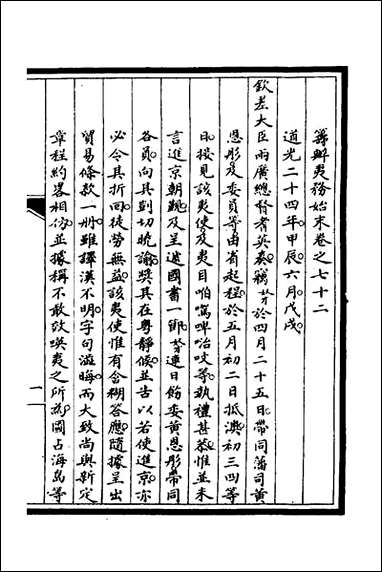 籌辦夷務始末卷之七十二
道光二十四年甲辰六月戊戌
欽差大臣兩廣總督耆英奏竊奴才於四月二十五日帶同藩司黃
恩彤及委員等由省起程於五月初二日抵澳初三四等
日接見該夷使及夷目咱嘪啤治咬等執禮甚恭惟並未
言進京朝覲及呈遞國書一節奴才連日飭委黃恩彤帶同
各員向其剴切曉諭獎其在粵靜候並告以若使進京亦
必令其折回徒勞無益該夷使惟有含糊答應隨據呈出
貿易條款一冊雖譯漢不明字句澁晦而大致尚與新定
章程約畧相倣並據稱不敢效𠸄夷之所為圖占海島等
一